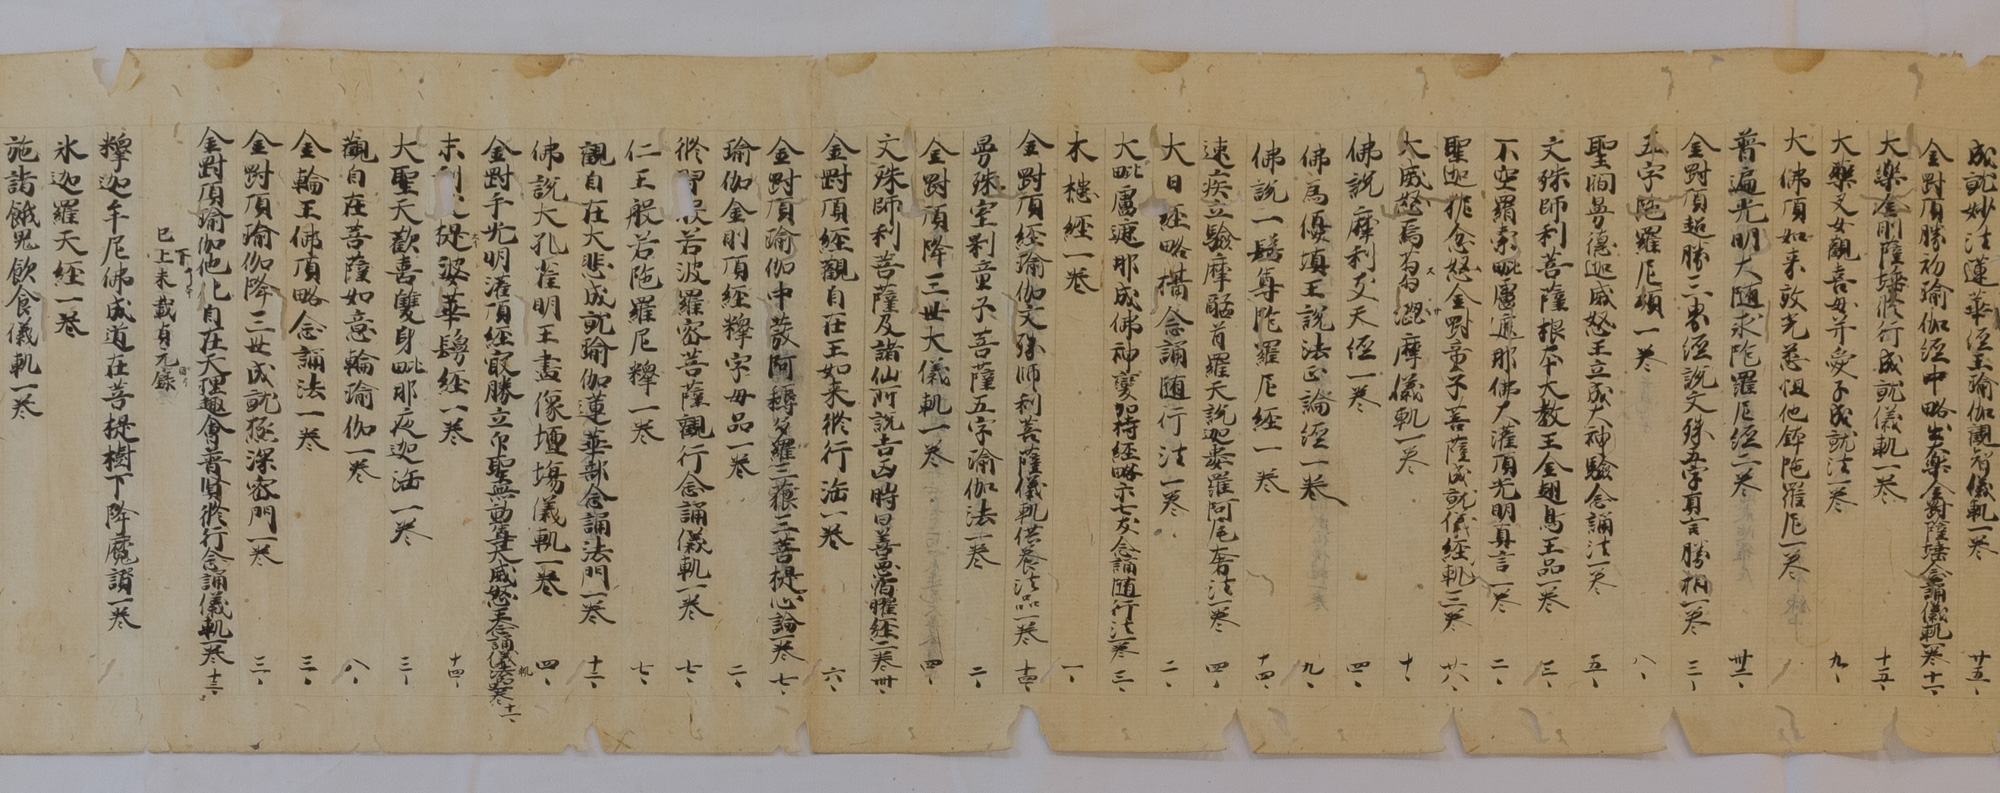 成就妙法蓮華經王瑜伽觀智儀軌一巻 廿五
金對頂勝初瑜伽經中略出大樂金對薩埵念誦儀軌一巻 十一
大樂金剛薩埵修行成就儀軌一巻 十五
大藥叉女觀喜母并愛子成就法一巻 九
大佛頂如来放光悉怛他鉢陁羅尼一巻
普遍光明大随求陁羅尼經二巻 卅二
金對頂超勝三界經説文殊五字真言勝相一巻 三
五字陁羅尼頌一巻 八
聖閻曼德迦威怒王立成大神驗念誦法一巻 五
文殊師利菩薩根本大教王金翅鳥王品一巻 三
不空羂索毗盧遮那佛大灌頂光明真言一巻 二
聖迦抳忿怒金對童子菩薩成就儀經軌三巻 廿八
大威怒烏芻澀摩儀軌一巻 十
佛説摩利支天經一巻 四
佛為優填王説法正論經一巻 九
佛説一髻尊陁羅尼經一巻 十四
速疾立驗摩醯首羅天説迦婁羅阿尾奢法一巻 四
大日經略攝念誦随行法一巻 二
大毗盧遮那成佛神變加持經略示七支念誦随行法一巻 三
木槵經一巻 一
金對頂經瑜伽文殊師利菩薩儀軌供養法品一巻 十四
曼殊室利童子菩薩五字瑜伽法一巻 二
金對頂降三世大儀軌一巻 四
文殊師利菩薩及諸仙所説吉凶時日善惡宿曜經二巻 卅
金對頂經觀自在王如来修行法一巻 六
金對頂瑜伽中發阿耨多羅三藐三菩提心論一巻 七
瑜伽金剛頂經釋字母品一巻 二
修習般若波羅蜜菩薩觀行念誦儀軌一巻 七
仁王般若陁羅尼釋一巻 七
觀自在大悲成就瑜伽蓮華部念誦法門一巻 十二
佛説大孔雀明王畫像壇場儀軌一巻 四
金對手光明灌頂經最勝立印聖無動尊大威怒王念誦儀軌法品一巻 十一
末利支提婆華鬘經一巻 十四
大聖天歡喜雙身毗那夜迦法一巻 三
觀自在菩薩如意輪瑜伽一巻 八
金輪王佛頂略念誦法一巻 三
金對頂瑜伽降三世成就極深密門一巻 三
金對頂瑜伽他化自在天理趣會普賢修行念誦儀軌一巻 十三
已上来載貞元錄
釋迦牟尼佛成道在菩提樹下降魔讃一巻
氷迦羅天經一巻
施諸餓鬼飲食儀軌一巻